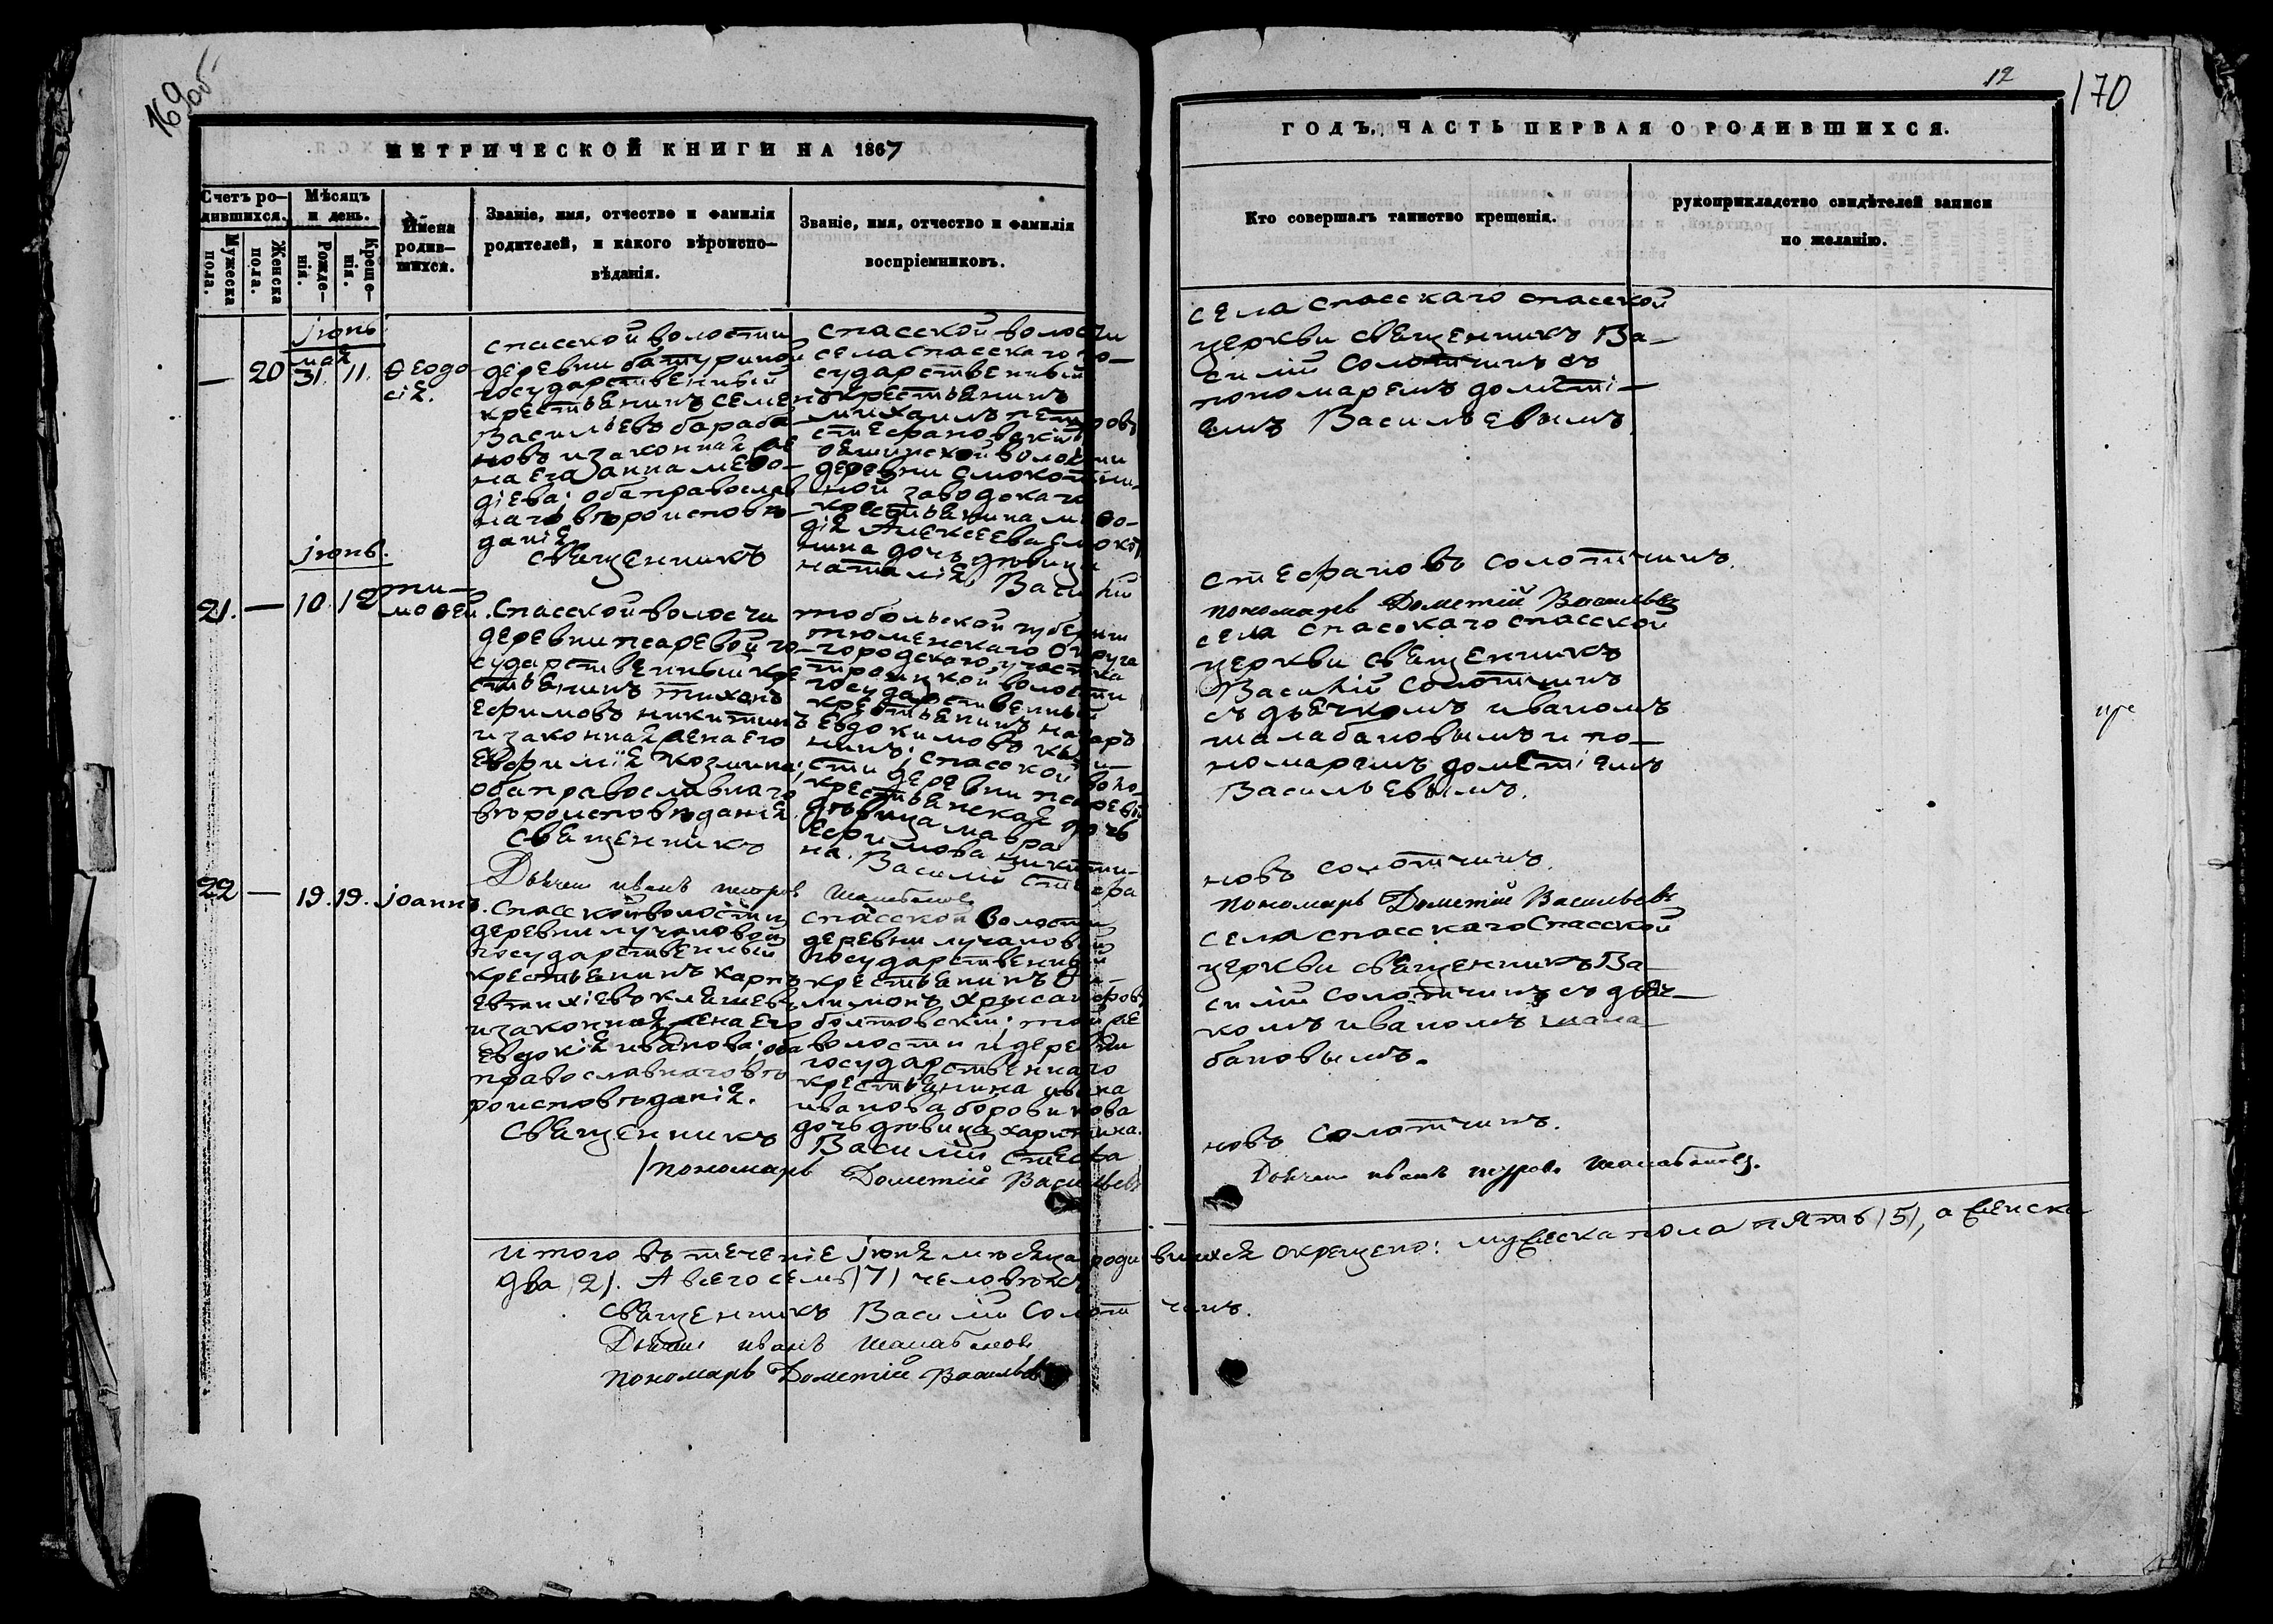 169об
МЕТРИЧЕСКОЙ КНИГИ НА 1867
Счетъ ро-
дившихся.
Мужеска
пола.
Женска
пола.
Мѣсяцъ
и день.
Рожде-
нія.
Креще-
нія.
Имена
родив-
шихся.
Званіе, имя, отчество и фамилія
родителей, и какого вѣроиспо-
вѣданія.
Званіе, имя, отчество и фамилія
воспріемниковъ.
іюнь
мая
— 20 31. 11. Ѳеодо
сія.
спасской волости
деревни батуриной
государственный
крестьянинъ семенъ
Васильевъ бараба-
новъ и законная же
на его анна меѳо-
діева; оба православ
наго вѣроисповѣ-
данія
священникъ
спасской волости
села спасскаго го-
сударственный
крестьянинъ
михаилъ петровъ
стефановскій
волости
деревни смокотни-
ной заводскаго
крестьянина меѳо-
дія Алексеева смокот
нина дочь дѣвица
наталія.
Василій
іюнь.
21. — 10. 12 ти-
моѳей.
Спасской волости
деревни псаревой го-
сударственный кре
стьянинъ тихонъ
ефимовъ никитинъ
и законная жена его
Евфимія козмина;
оба православнаго
вѣроисповѣданія.
священникъ
тобольской губерніи
тюменскаго округа
городскаго участка
троицкой волости
государственный
крестьянинъ назаръ
Евдокимовъ
спасской воло-
сти деревни псаревой
крестьянская дочь
дѣвица мавра
Ефимова никити-
на.
Василій стефа
Дьячекъ иванъ петровъ Шалабановъ
22 — 19. 19. іоаннъ.
спасской волости
деревни лучановой
государственный
крестьянинъ карпъ
евтихіевъ кляшевъ
и законная жена его
Евдокія иванова; оба
православнаго вѣ
роисповѣданія.
священникъ
спасской волости
деревни лучановой
государственный
крестьянинъ Фи-
лимонъ хрисанфовъ
болтовскій; той же
волости и деревни
государственнаго
крестьянина ивана
иванова боровикова
дочь дѣвица харитина.
Василій стефа
пономарь Дометій Васильевъ
итого въ теченіе іюня мѣсяца родившихся окрещено: мужеска пола пять (5), а женска
два (2). А всего семь (7) человѣкъ
священникъ Василій Солотчинъ.
Дьячекъ иванъ Шалабановъ
пономарь Дометій Васильевъ
12
170
ГОДЪ, ЧАСТЬ ПЕРВАЯ О РОДИВШИХСЯ.
Кто совершалъ таинство крещенія.
рукоприкладство свидѣтелей записи
по желанію.
села спасскаго спасской
церкви священникъ Ва-
силій Солотчинъ съ
пономаремъ дометі-
емъ Васильевымъ.
стефановъ солотчинъ.
пономарь Дометій Васильевъ
села спасскаго спасской
церкви священникъ
Василій Солотчинъ
съ дьячкомъ иваномъ
шалабановымъ и по-
номаремъ дометіемъ
Васильевымъ.
новъ солотчинъ.
пономарь Дометій Васильевъ
села спасскаго Спасской
церкви священникъ Ва-
силій солотчинъ съ дьяч-
комъ иваномъ шала-
бановымъ.
новъ солотчинъ.
Дьячекъ иванъ петровъ Шалабановъ.